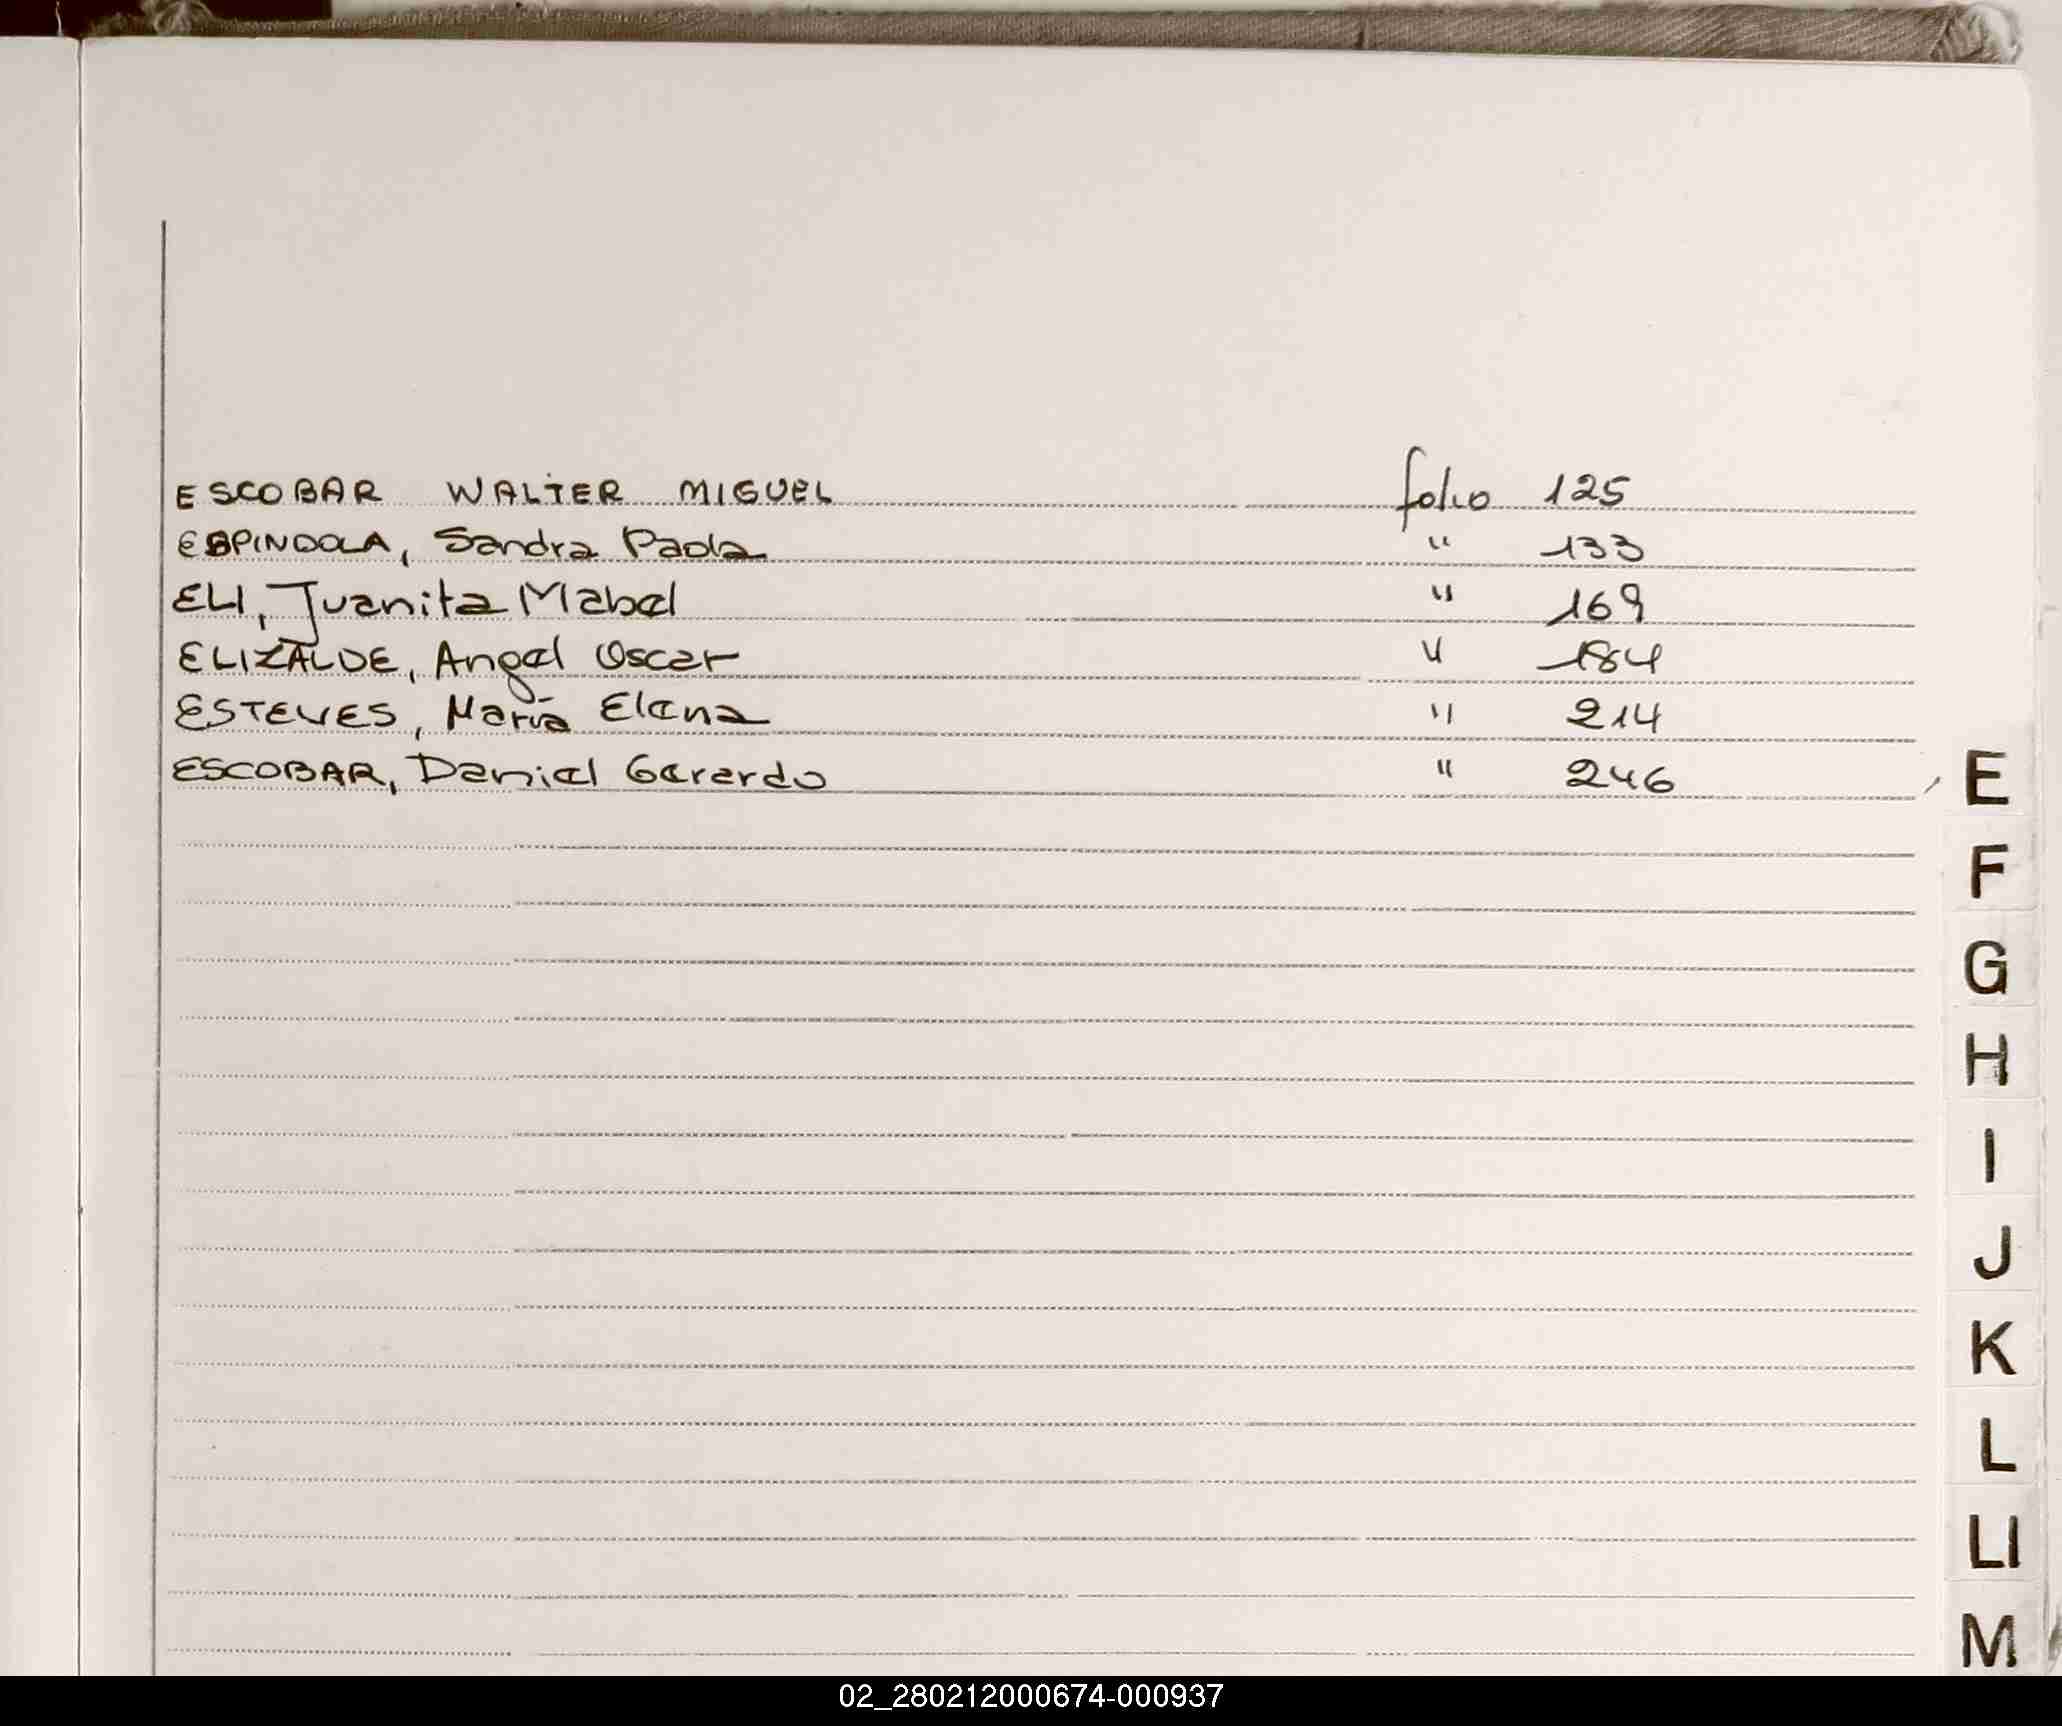 ESCOBAR WALTER MIGUEL folio 125
ESPINDOLA, Sandra Paola " 133
ELI, Juanita Mabel " 169
ELIZALDE, Angel Oscar " 184
ESTEVES, María Elena " 214
ESCOBAR, Daniel Gerardo " 246
E
F
G
H
I
J
K
L
Ll
M
02_280212000674-000937